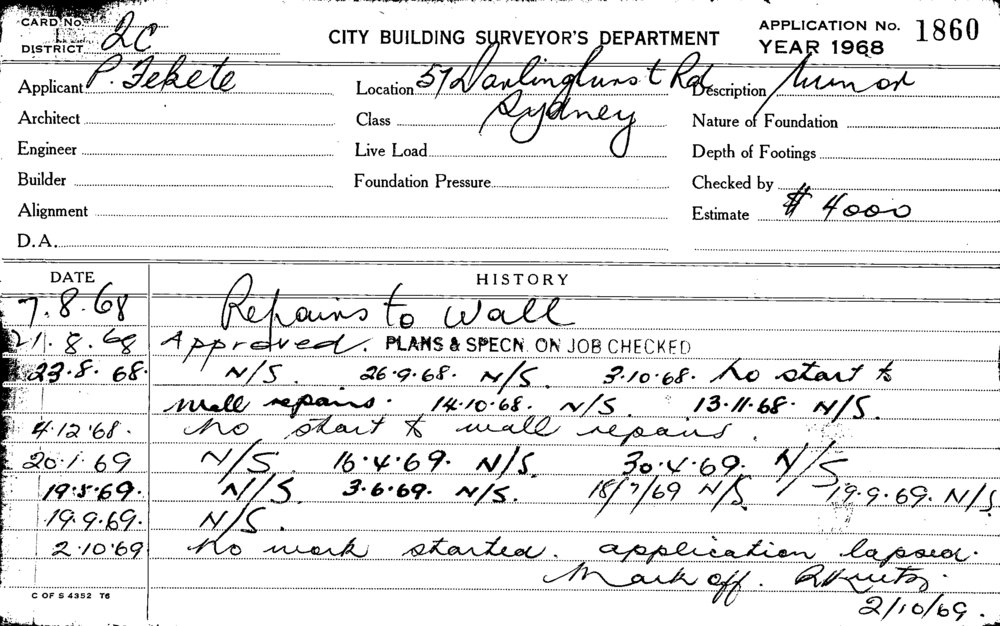 CARD No.
DISTRICT 2C
CITY BUILDING SURVEYOR'S DEPARTMENT
APPLICATION No. 1860
YEAR 1968
Applicant P. Fekete
Location 57 Darlinghurst Rd
Sydney
Description Minor
Architect
Class
Nature of Foundation
Engineer
Live Load
Depth of Footings
Builder
Foundation Pressure
Checked by
Alignment
Estimate $ 4000
D.A.
DATE HISTORY
7.8.68 Repairs to Wall
21.8.68 Approved. PLANS & SPECN. ON JOB CHECKED
23.8.68. N/S. 26.9.68. N/S. 3.10.68. No start to
wall repairs. 14.10.68. N/S. 13.11.68. N/S.
4.12.68. No start to wall repairs.
20.1.69 N/S. 16.4.69. N/S. 30.4.69. N/S
19.5.69. N/S. 3.6.69. N/S. 18/7/69 N/S. 19.9.69. N/S
19.9.69. N/S.
2.10.69 No work started. application lapsed.
Mark off.
2/10/69.
C OF S 4352 T6